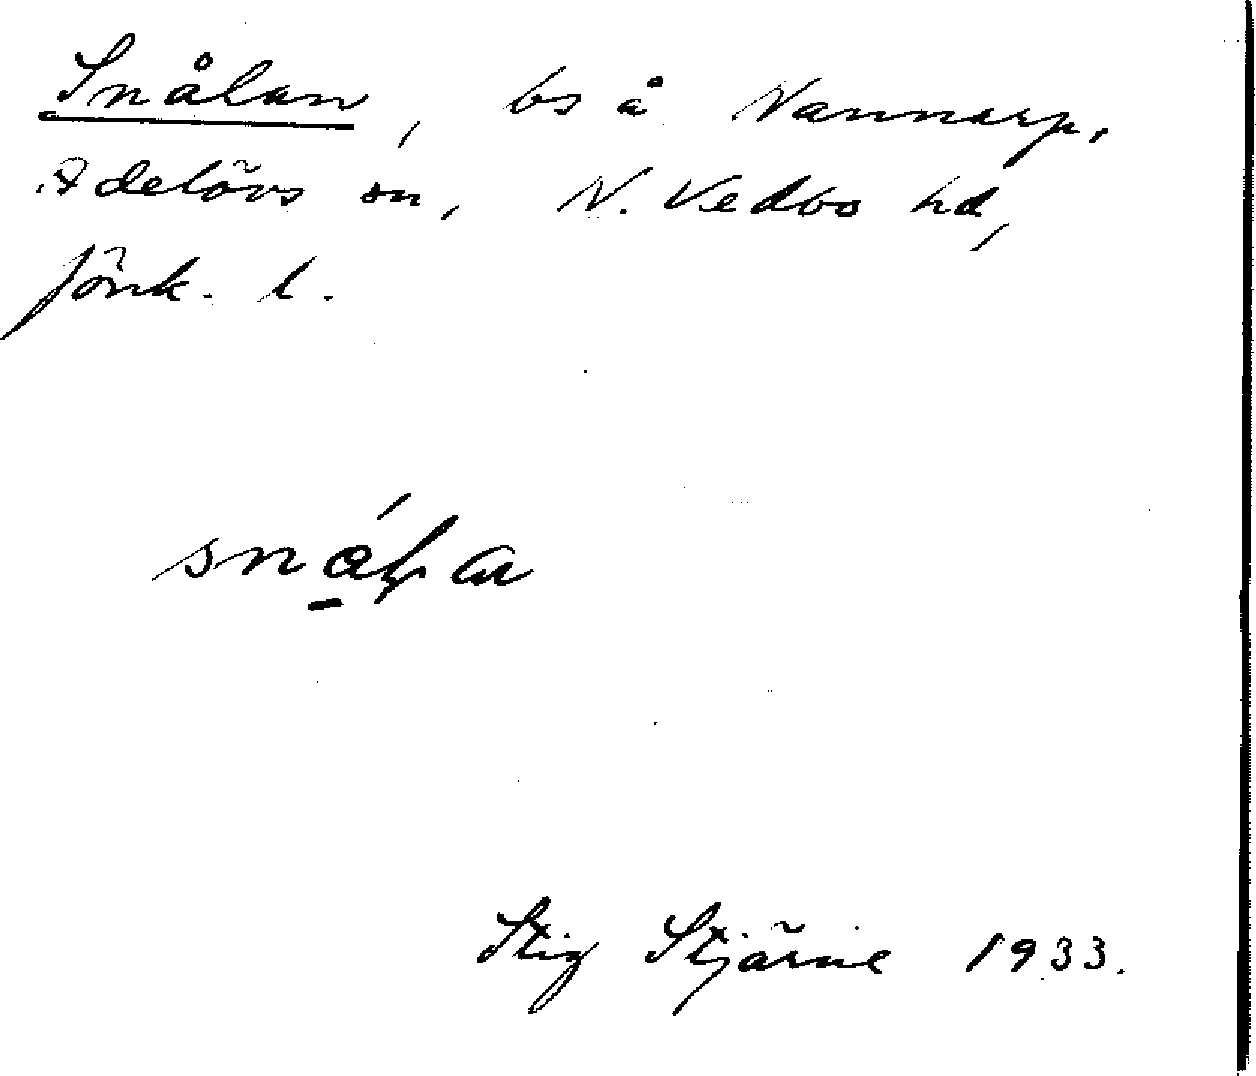 Snålan, bs å Nannarp,
Adelövs sn, N. Vedbo hd,
Jönk. l.
Stig Stjärne 1933.